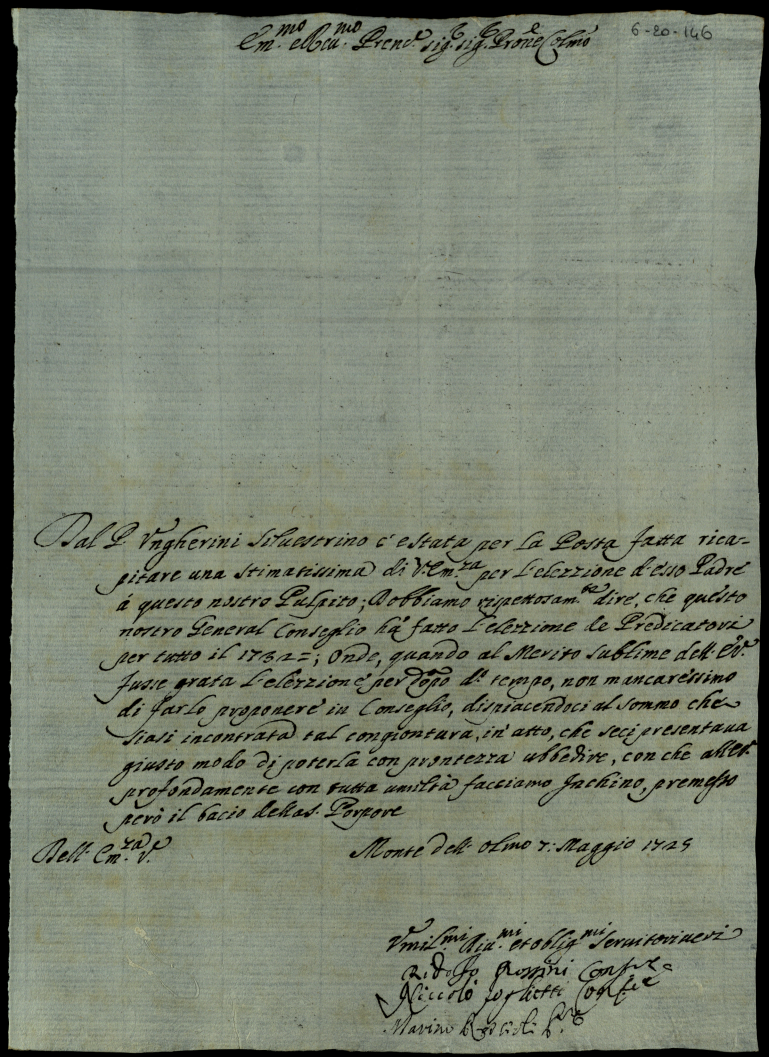 6-20-146
Em.mo e Reu.mo Prenc.e sig.r sig.r Pron.e Colmo
Dal P. Vngherini Siluestrino c'è stata per la Posta fatta rica-
pitare una stimatissima di V. Em.za per l'elezzione d'esso Padre
à questo nostro Pulpito; Dobbiamo rispettosam.te dire, che questo
nostro General Conseglio hà fatto l'elezzione de Predicatori
per tutto il 1732=; Onde, quando al Merito sublime dell' E.V.
fusse grata l'elezzione per dopo d.o tempo, non mancaressimo
di farlo proponere in Conseglio, dispiacendoci al sommo che
siasi incontrata tal congiontura, in atto, che seci presentaua
giusto modo di poterla con prontezza ubbedire, con che all'E.V.
profondamente con tutta umiltà facciamo Inchino, premesso
però il bacio della s. Porpore
Dell' Em.za V.
Monte dell' Olmo 7: Maggio 1725
Vmil.mi Diu.mi et oblig.mi Seruitori ueri
Ridolfo Confre
Niccolò Confre
Marino